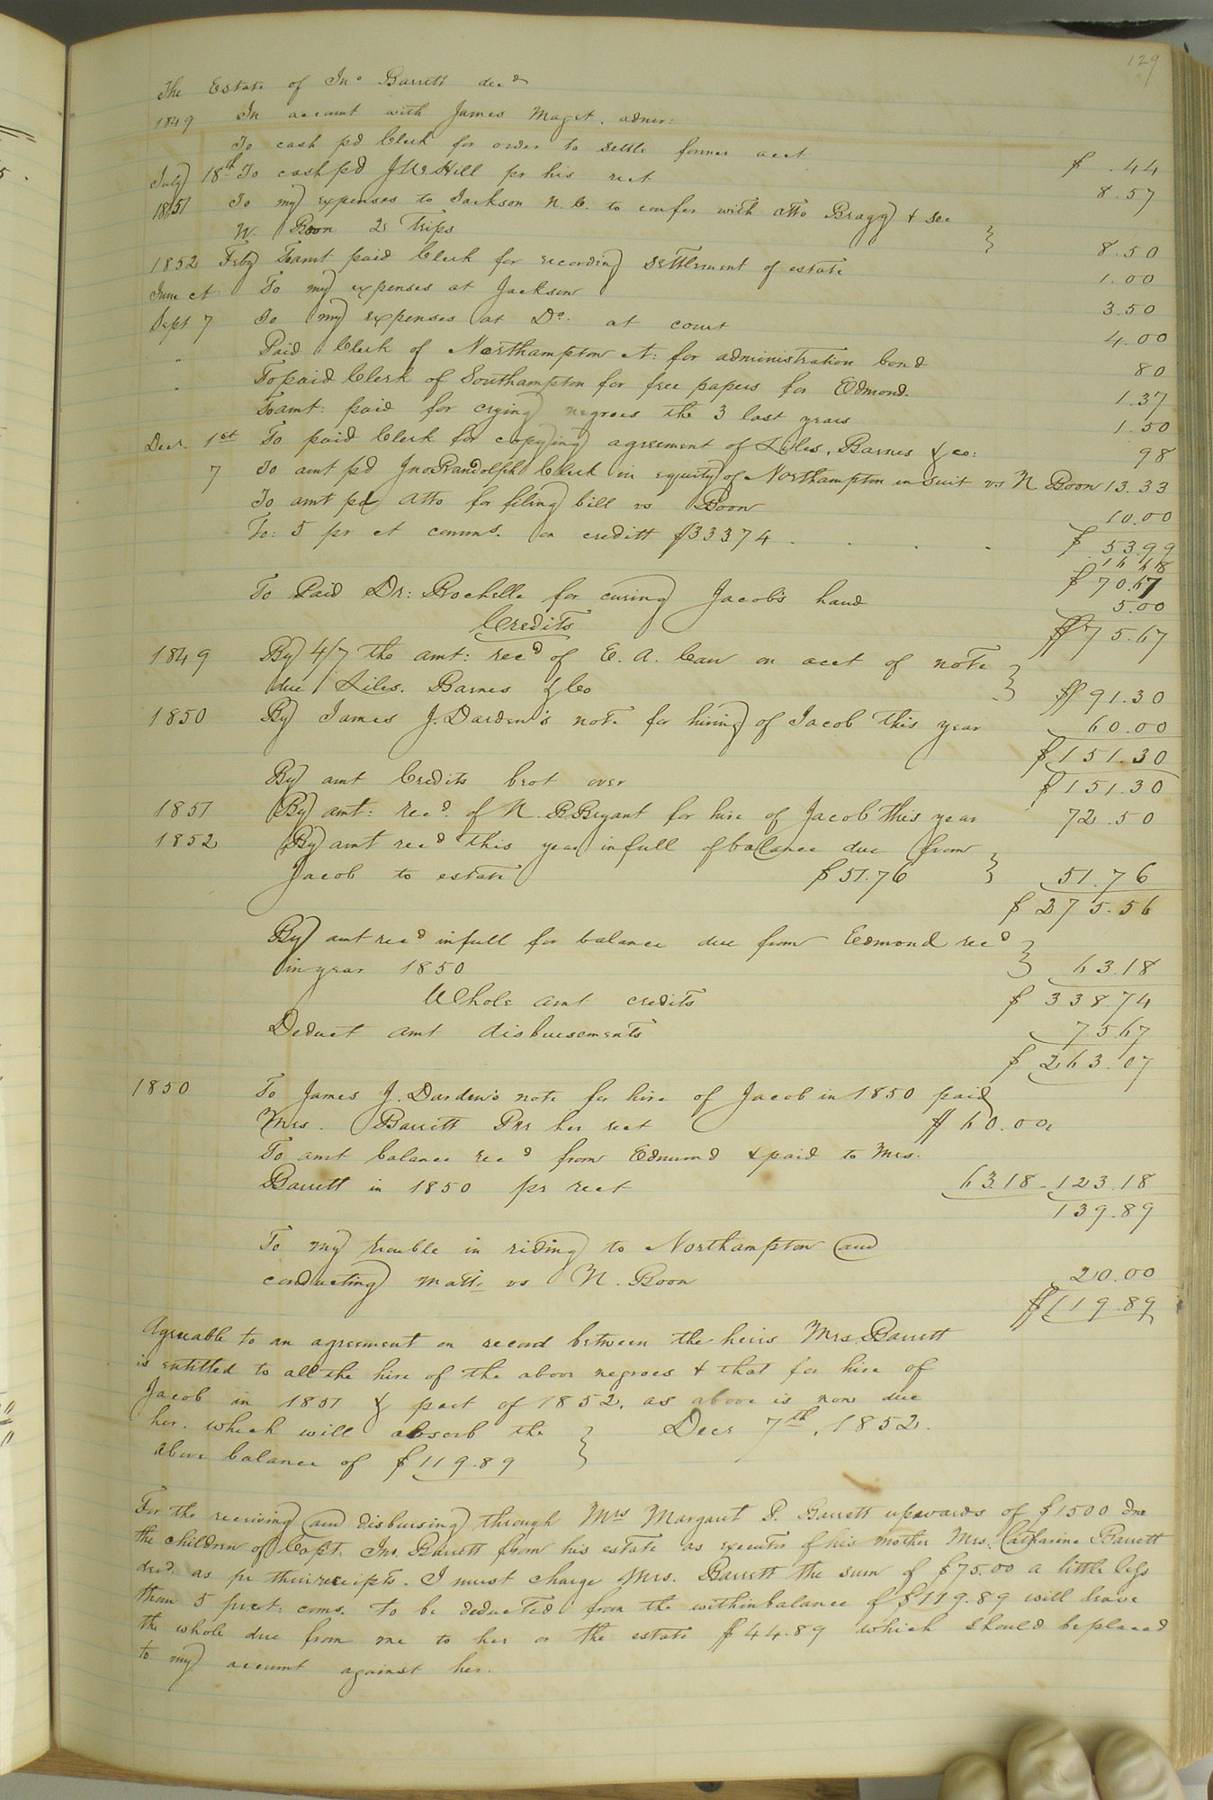 129
The Estate of Jno Barrett decd
1849 In account with James Maget, admr:
To cash pd Clerk for order to settle former acct $ .44
July 18th To cash pd J W Hill pr his rect 8.57
1851 To my expenses to Jackson N. C. to confer with atto Bragg & see
N. Boon 2 Trips 8.50
1852 Feby To amt paid Clerk for recording settlement of estate 1.00
June ct To my expenses at Jackson 3.50
Sept 7 To my expenses at Do. at court 4.00
" Paid Clerk of Northampton ct: for administration bond 80
" To paid Clerk of Southampton for free papers for Edmond. 1.37
To amt: paid for crying negroes the 3 last years 1.50
Decr 1st To paid Clerk for copying agreement of Liles, Barnes & co: 98
7 To amt pd Jno Randolph Clerk in equity of Northampton in suit vs N Boon 13.33
To amt pd Atto for filing bill vs Boon 10.00
To: 5 pr ct comms. on creditt $333 74 . . . . $ 53.99
16 68
$ 70.67
To Paid Dr: Rochelle for curing Jacob's hand 5.00
Credits $75.67
1849 By 4/7 the amt: recd of E. A. Carr on acct of note
due Liles. Barnes & Co $91.30
1850 By James J. Darden's note for hiring of Jacob this year 60.00
$151.30
By amt Credits brot over $151.30
1851 By amt: recd. of N. B Bryant for hire of Jacob this year 72.50
1852 By amt recd this year in full of balance due from
Jacob to estate $51.76 51.76
$ 275.56
By amt recd in full for balance due from Edmond recd
in year 1850 63.18
Whole amt credits $ 338.74
Deduct amt disbursements 75.67
$ 263.07
1850 To James J. Darden's note for hire of Jacob in 1850 paid
Mrs. Barrett Per her rect $60.00
To amt balance recd from Edmund & paid to Mrs.
Barrett in 1850 pr rect 63.18 - 123.18
139.89
To my trouble in riding to Northampton and
conducting matts vs N. Boon 20.00
$119.89
Agreeable to an agreement on record between the heirs Mrs Barrett
is entitled to all the hire of the above negroes & that for hire of
Jacob in 1851 & part of 1852, as above is now due
her. which will absorb the Decr 7th, 1852.
above balance of $119.89
For the receiving and disbursing through Mrs Margaret P. Barrett upwards of $1500 due
the children of Capt. Jno. Barrett from his estate as executor of his mother Mrs. Catharine Barrett
decd. as pr their receipts. I must charge Mrs. Barrett the sum of $75.00 a little less
than 5 pr ct. coms. to be deducted from the within balance of $119.89 will leave
the whole due from me to her or the estate $44.89 which should be placed
to my account against her.